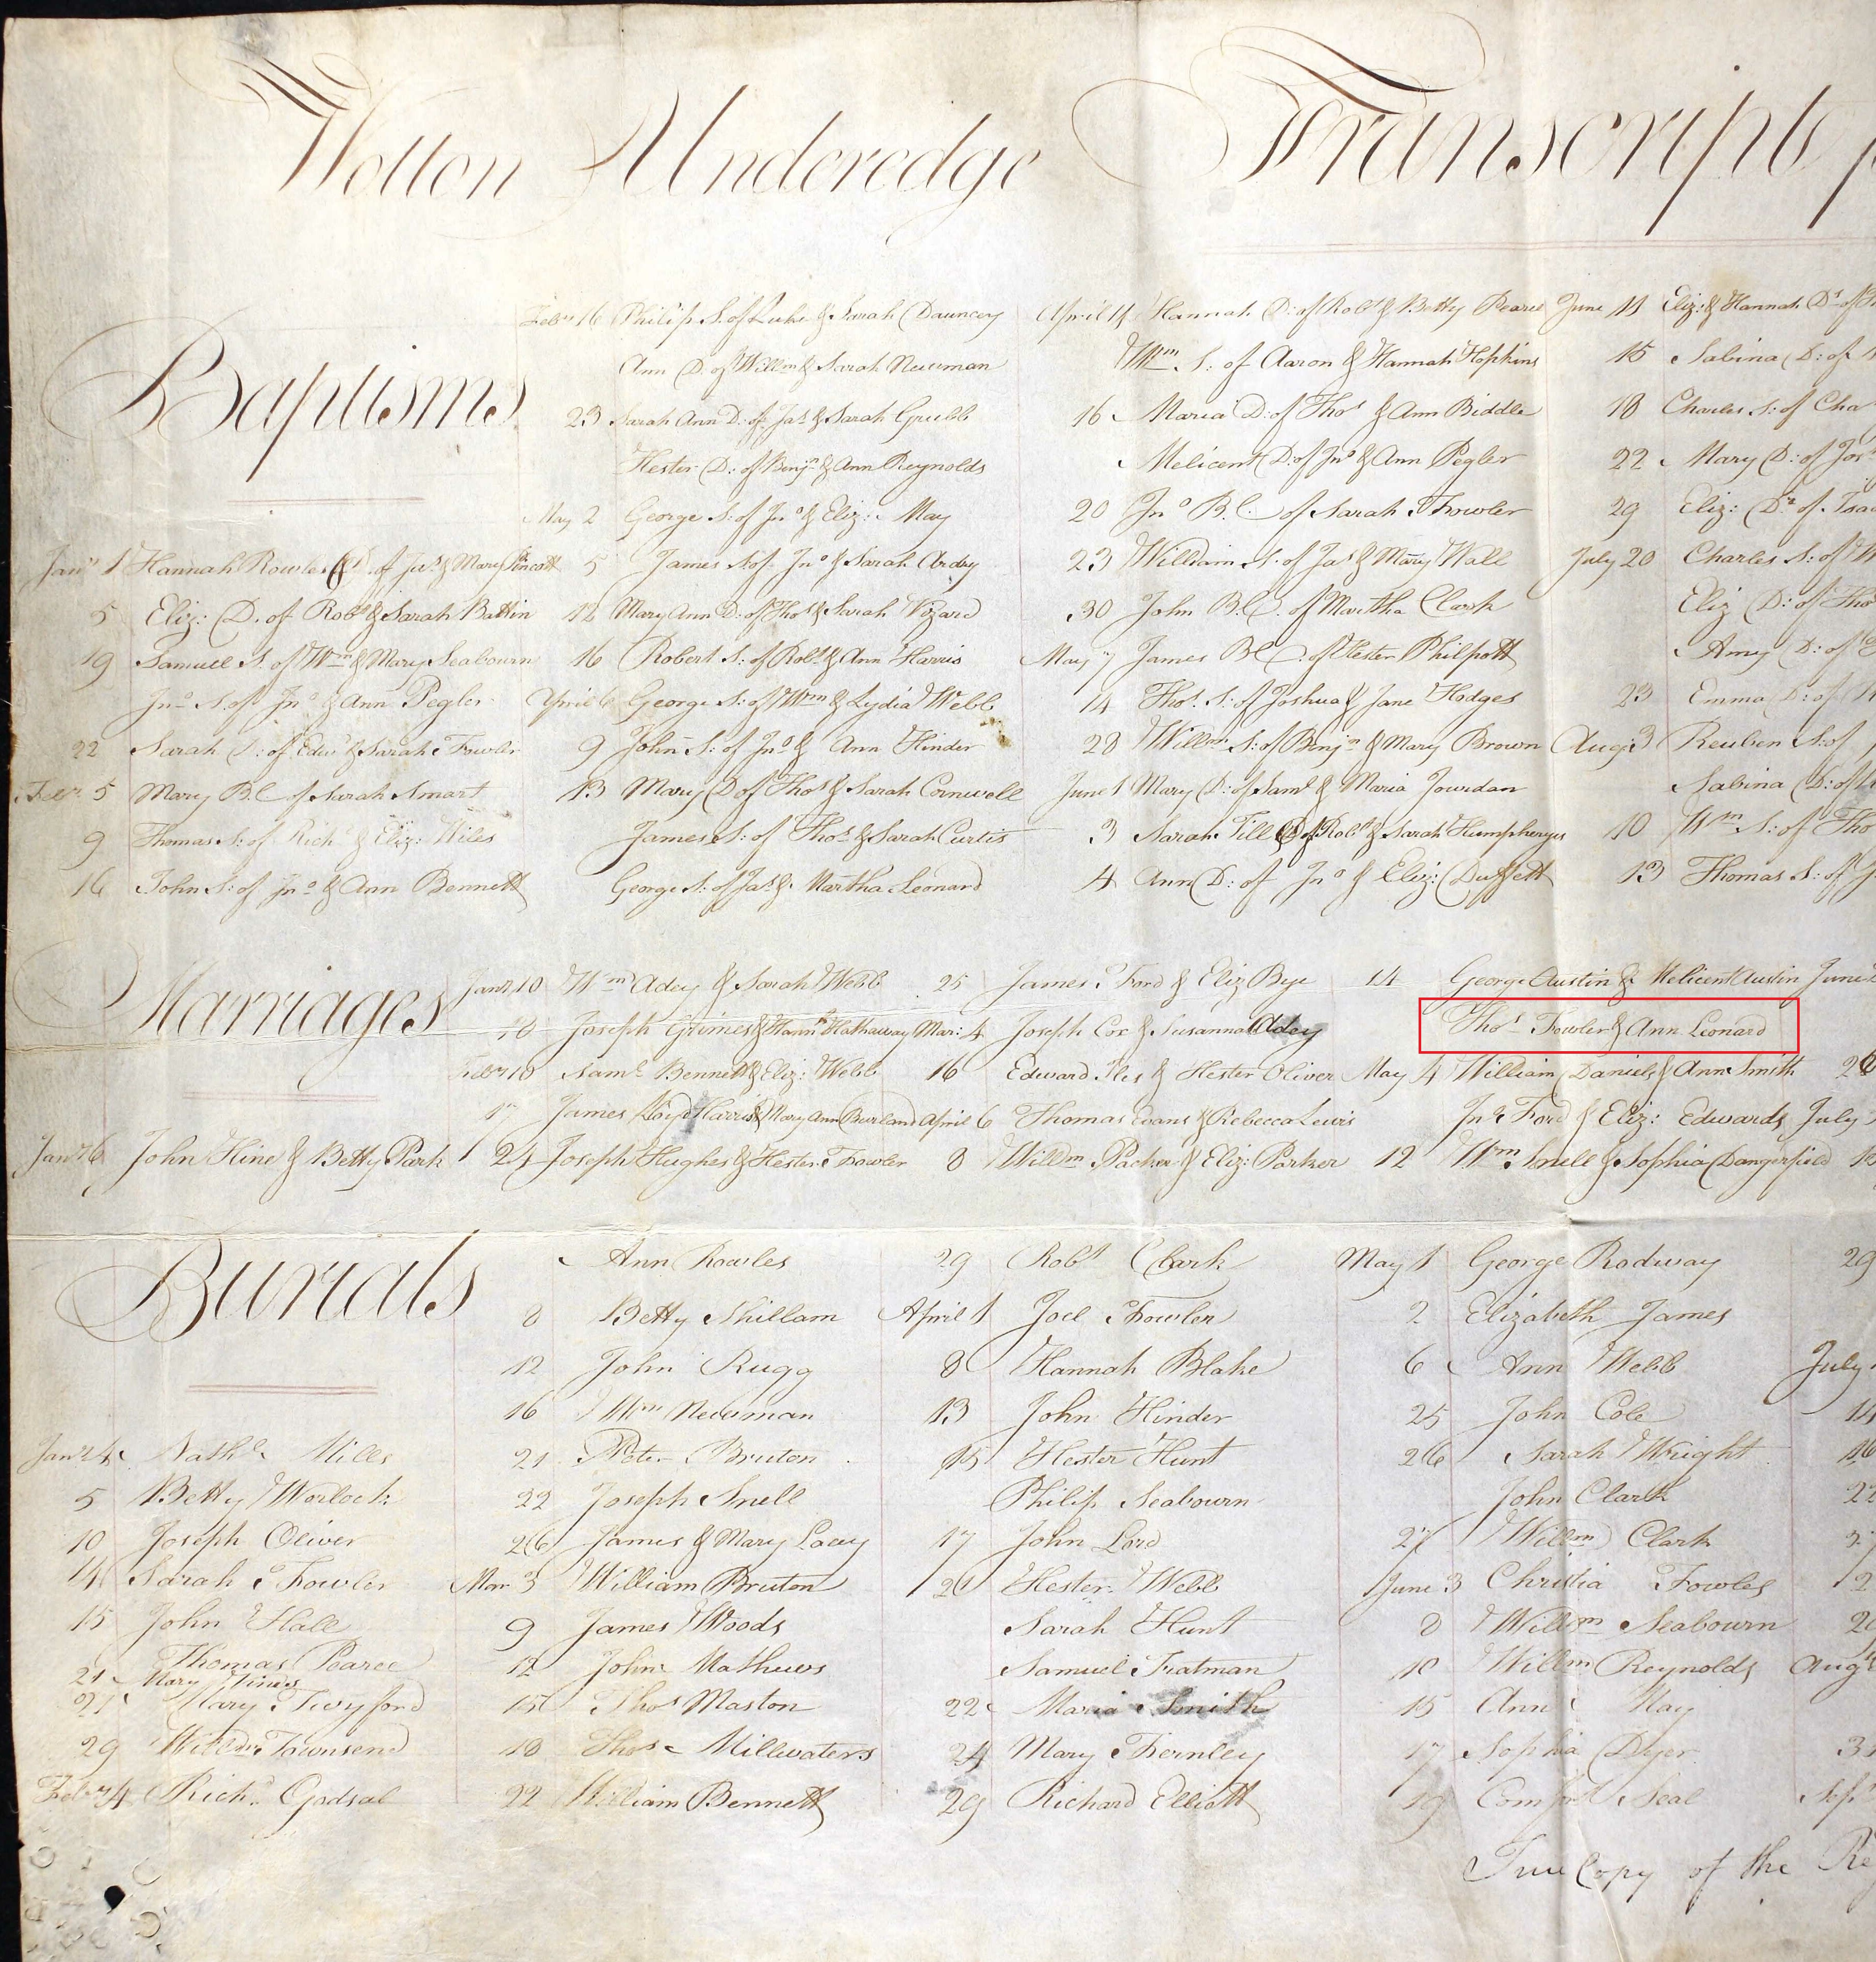 Wotton Underedge Transcripts
Baptisms
Jany 1 Hannah Rowles D. of Jas & Mary Pincott
5 Eliz: D. of Robt & Sarah Battin
19 Samuel S. of Wm & Mary Seabourn
Jno S. of Jno & Ann Pegler
22 Sarah D: of Edwd & Sarah Fowler
Feby 5 Mary B.C of Sarah Smart
9 Thomas S: of Richd & Eliz: Wiles
16 John S: of Jno & Ann Bennett
Feby 16 Philip S. of Luke & Sarah Dauncey
Ann D. of Willm & Sarah Newman
23 Sarah Ann D: of Jas & Sarah Grubb
Hester D: of Benjn & Ann Reynolds
May 2 George S: of Jno & Eliz: May
5 James S. of Jno & Sarah Ardey
12 Mary Ann D: of Thos & Sarah Vizard
16 Robert S: of Robt & Ann Harris
April 6 George S: of Wm & Lydia Webb
9 John S: of Jno & Ann Hinder
13 Mary D of Thos & Sarah Cornwell
James S: of Thos & Sarah Curtis
George S: of Jas & Martha Leonard
April 14 Hannah D: of Robt & Betty Pearce
Wm S: of Aaron & Hannah Hopkins
16 Maria D: of Thos & Ann Biddle
Melicent D: of Jno & Ann Pegler
20 Jno B.C. of Sarah Fowler
23 William S: of Jas & Mary Wall
30 John B.C. of Martha Clark
May 7 James B C: of Hester Philpott
14 Thos. S: of Joshua & Jane Hodges
28 Willm S: of Benjn & Mary Brown
June 1 Mary D: of Saml & Maria Jourdan
3 Sarah Till D of Robt & Sarah Humpheryes
4 Ann D: of Jno & Eliz: Duffett
June 11 Eliz: & Hannah Ds of
15 Sabina D: of
18 Charles S: of Cha
22 Mary D: of Jos
29 Eliz: D: of Isaa
July 20 Charles S: of W
Eliz D: of Tho
Amy D: of
23 Emma D: of
Aug: 3 Reuben S: of
Sabina D: of
10 Wm S: of Tho
13 Thomas S: of J
Marriages
Jany 6 John Hine & Betty Park
Jany 10 Wm Adey & Sarah Webb
10 Joseph Grimes & Hannh Hathaway
Feby 10 Saml Bennett & Eliz: Webb
17 James Loyd Harris & Mary Ann Burland
24 Joseph Hughes & Hester Fowler
25 James Ford & Eliz Bye
Mar: 4 Joseph Cox & Susanna Adey
16 Edward Iles & Hester Oliver
April 6 Thomas Evans & Rebecca Lewis
8 Willm Packer & Eliz: Parker
14 George Austin & Melicent Austin
Thos Fowler & Ann Leonard
May 4 William Daniels & Ann Smith
Jno Ford & Eliz: Edwards
12 Wm Snell & Sophia Dangerfield
June
July
Burials
Jany 4 Nathl Mills
5 Betty Worlock
10 Joseph Oliver
14 Sarah Fowler
15 John Hall
Thomas Pearce
21 Mary Tines
Mary Twyford
29 Willm Townsend
Feby 4 Richd Godsal
Ann Rowles
8 Betty Shillam
12 John Rugg
16 Wm Newman
21 Peter Bruton
22 Joseph Snell
26 James & Mary Lacey
Mar 3 William Bruton
9 James Woods
12 John Mathews
15 Thos Maston
18 Thos Millwaters
22 William Bennett
29 Robt Clark
April 1 Joel Fowler
8 Hannah Blake
13 John Hinder
15 Hester Hunt
Philip Seabourn
17 John Lord
Hester Webb
Sarah Hunt
Samuel Tratman
22 Maria Smith
24 Mary Thernley
29 Richard Elliott
May 1 George Rodway
2 Elizabeth James
6 Ann Webb
25 John Cole
26 Sarah Wright
John Clark
27 Willm Clark
June 3 Christia Fowles
8 Willm Seabourn
10 Willm Reynolds
15 Ann May
17 Sophia Dyer
19 Comfort Seal
29
July
Augt
Sep
True Copy of the Re